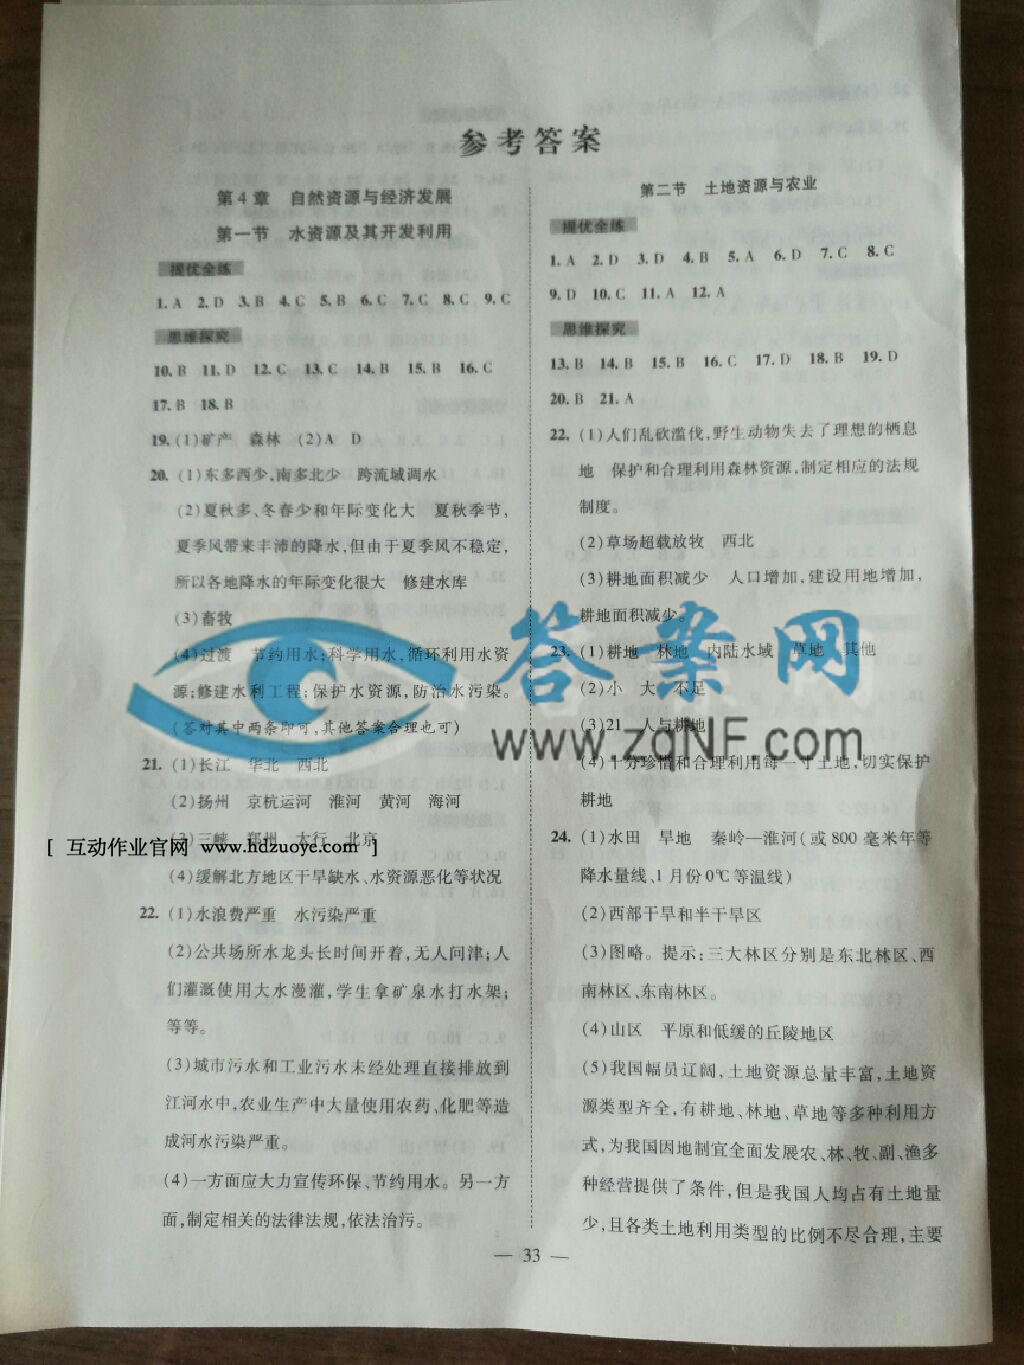 参考答案
第4章 自然资源与经济发展
第一节 水资源及其开发利用
提优全练
1. A 2. D 3. B 4. C 5. B 6. C 7. C 8. C 9. C
思维探究
10. B 11. D 12. C 13. C 14. B 15. B 16. C
17. B 18. B
19. (1)矿产 森林 (2)A D
20. (1)东多西少,南多北少 跨流域调水
(2)夏秋多、冬春少和年际变化大 夏秋季节,
夏季风带来丰沛的降水,但由于夏季风不稳定,
所以各地降水的年际变化很大 修建水库
(3)畜牧
(4)过渡 节约用水;科学用水,循环利用水资
源;修建水利工程;保护水资源,防治水污染。
(答对其中两条即可,其他答案合理也可)
21. (1)长江 华北 西北
(2)扬州 京杭运河 淮河 黄河 海河
(3)三峡 郑州 太行 北京
[ 互动作业官网 www.hdzuoye.com ]
(4)缓解北方地区干旱缺水、水资源恶化等状况
22. (1)水浪费严重 水污染严重
(2)公共场所水龙头长时间开着,无人问津;人
们灌溉使用大水漫灌,学生拿矿泉水打水架;
等等。
(3)城市污水和工业污水未经处理直接排放到
江河水中,农业生产中大量使用农药、化肥等造
成河水污染严重。
(4)一方面应大力宣传环保、节约用水。另一方
面,制定相关的法律法规,依法治污。
第二节 土地资源与农业
提优全练
1. A 2. D 3. D 4. B 5. A 6. D 7. C 8. C
9. D 10. C 11. A 12. A
思维探究
13. B 14. B 15. B 16. C 17. D 18. B 19. D
20. B 21. A
22. (1)人们乱砍滥伐,野生动物失去了理想的栖息
地 保护和合理利用森林资源,制定相应的法规
制度。
(2)草场超载放牧 西北
(3)耕地面积减少 人口增加,建设用地增加,
耕地面积减少。
23. (1)耕地 林地 内陆水域 草地 其他
(2)小 大 不足
(3)21 人与耕地
(4)十分珍惜和合理利用每一寸土地,切实保护
耕地
24. (1)水田 旱地 秦岭—淮河(或800毫米年等
降水量线、1月份0℃等温线)
(2)西部干旱和半干旱区
(3)图略。提示:三大林区分别是东北林区、西
南林区、东南林区。
(4)山区 平原和低缓的丘陵地区
(5)我国幅员辽阔,土地资源总量丰富,土地资
源类型齐全,有耕地、林地、草地等多种利用方
式,为我国因地制宜全面发展农、林、牧、副、渔多
种经营提供了条件,但是我国人均占有土地量
少,且各类土地利用类型的比例不尽合理,主要
答案网
www.zqNF.com
— 33 —